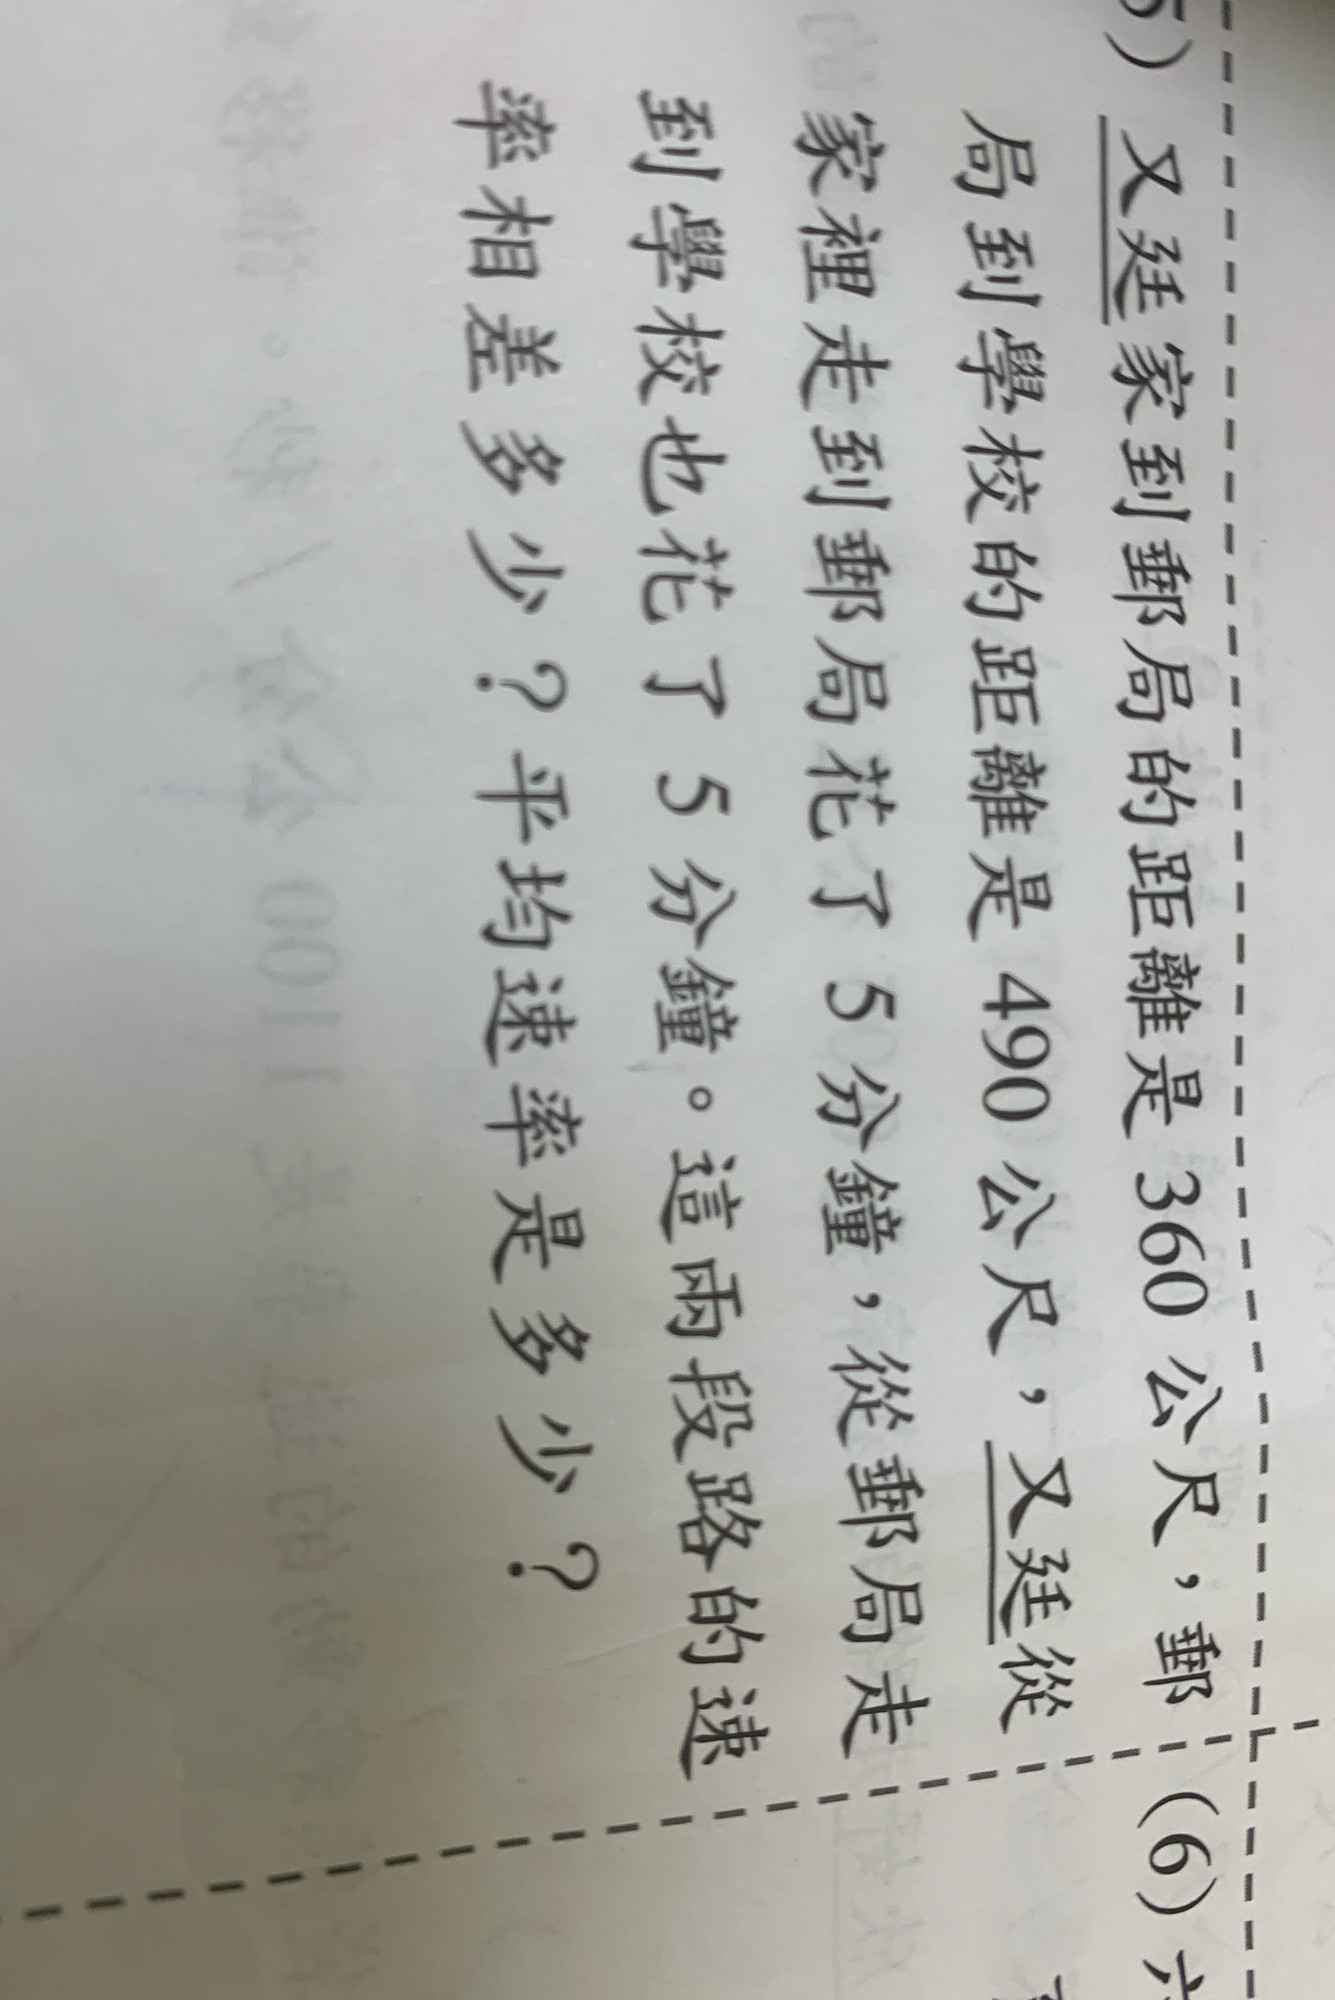 5) 又廷家到郵局的距離是 360 公尺，郵
局到學校的距離是 490 公尺，又廷從
家裡走到郵局花了 5 分鐘，從郵局走
到學校也花了 5 分鐘。這兩段路的速
率相差多少？平均速率是多少？
(6) 六